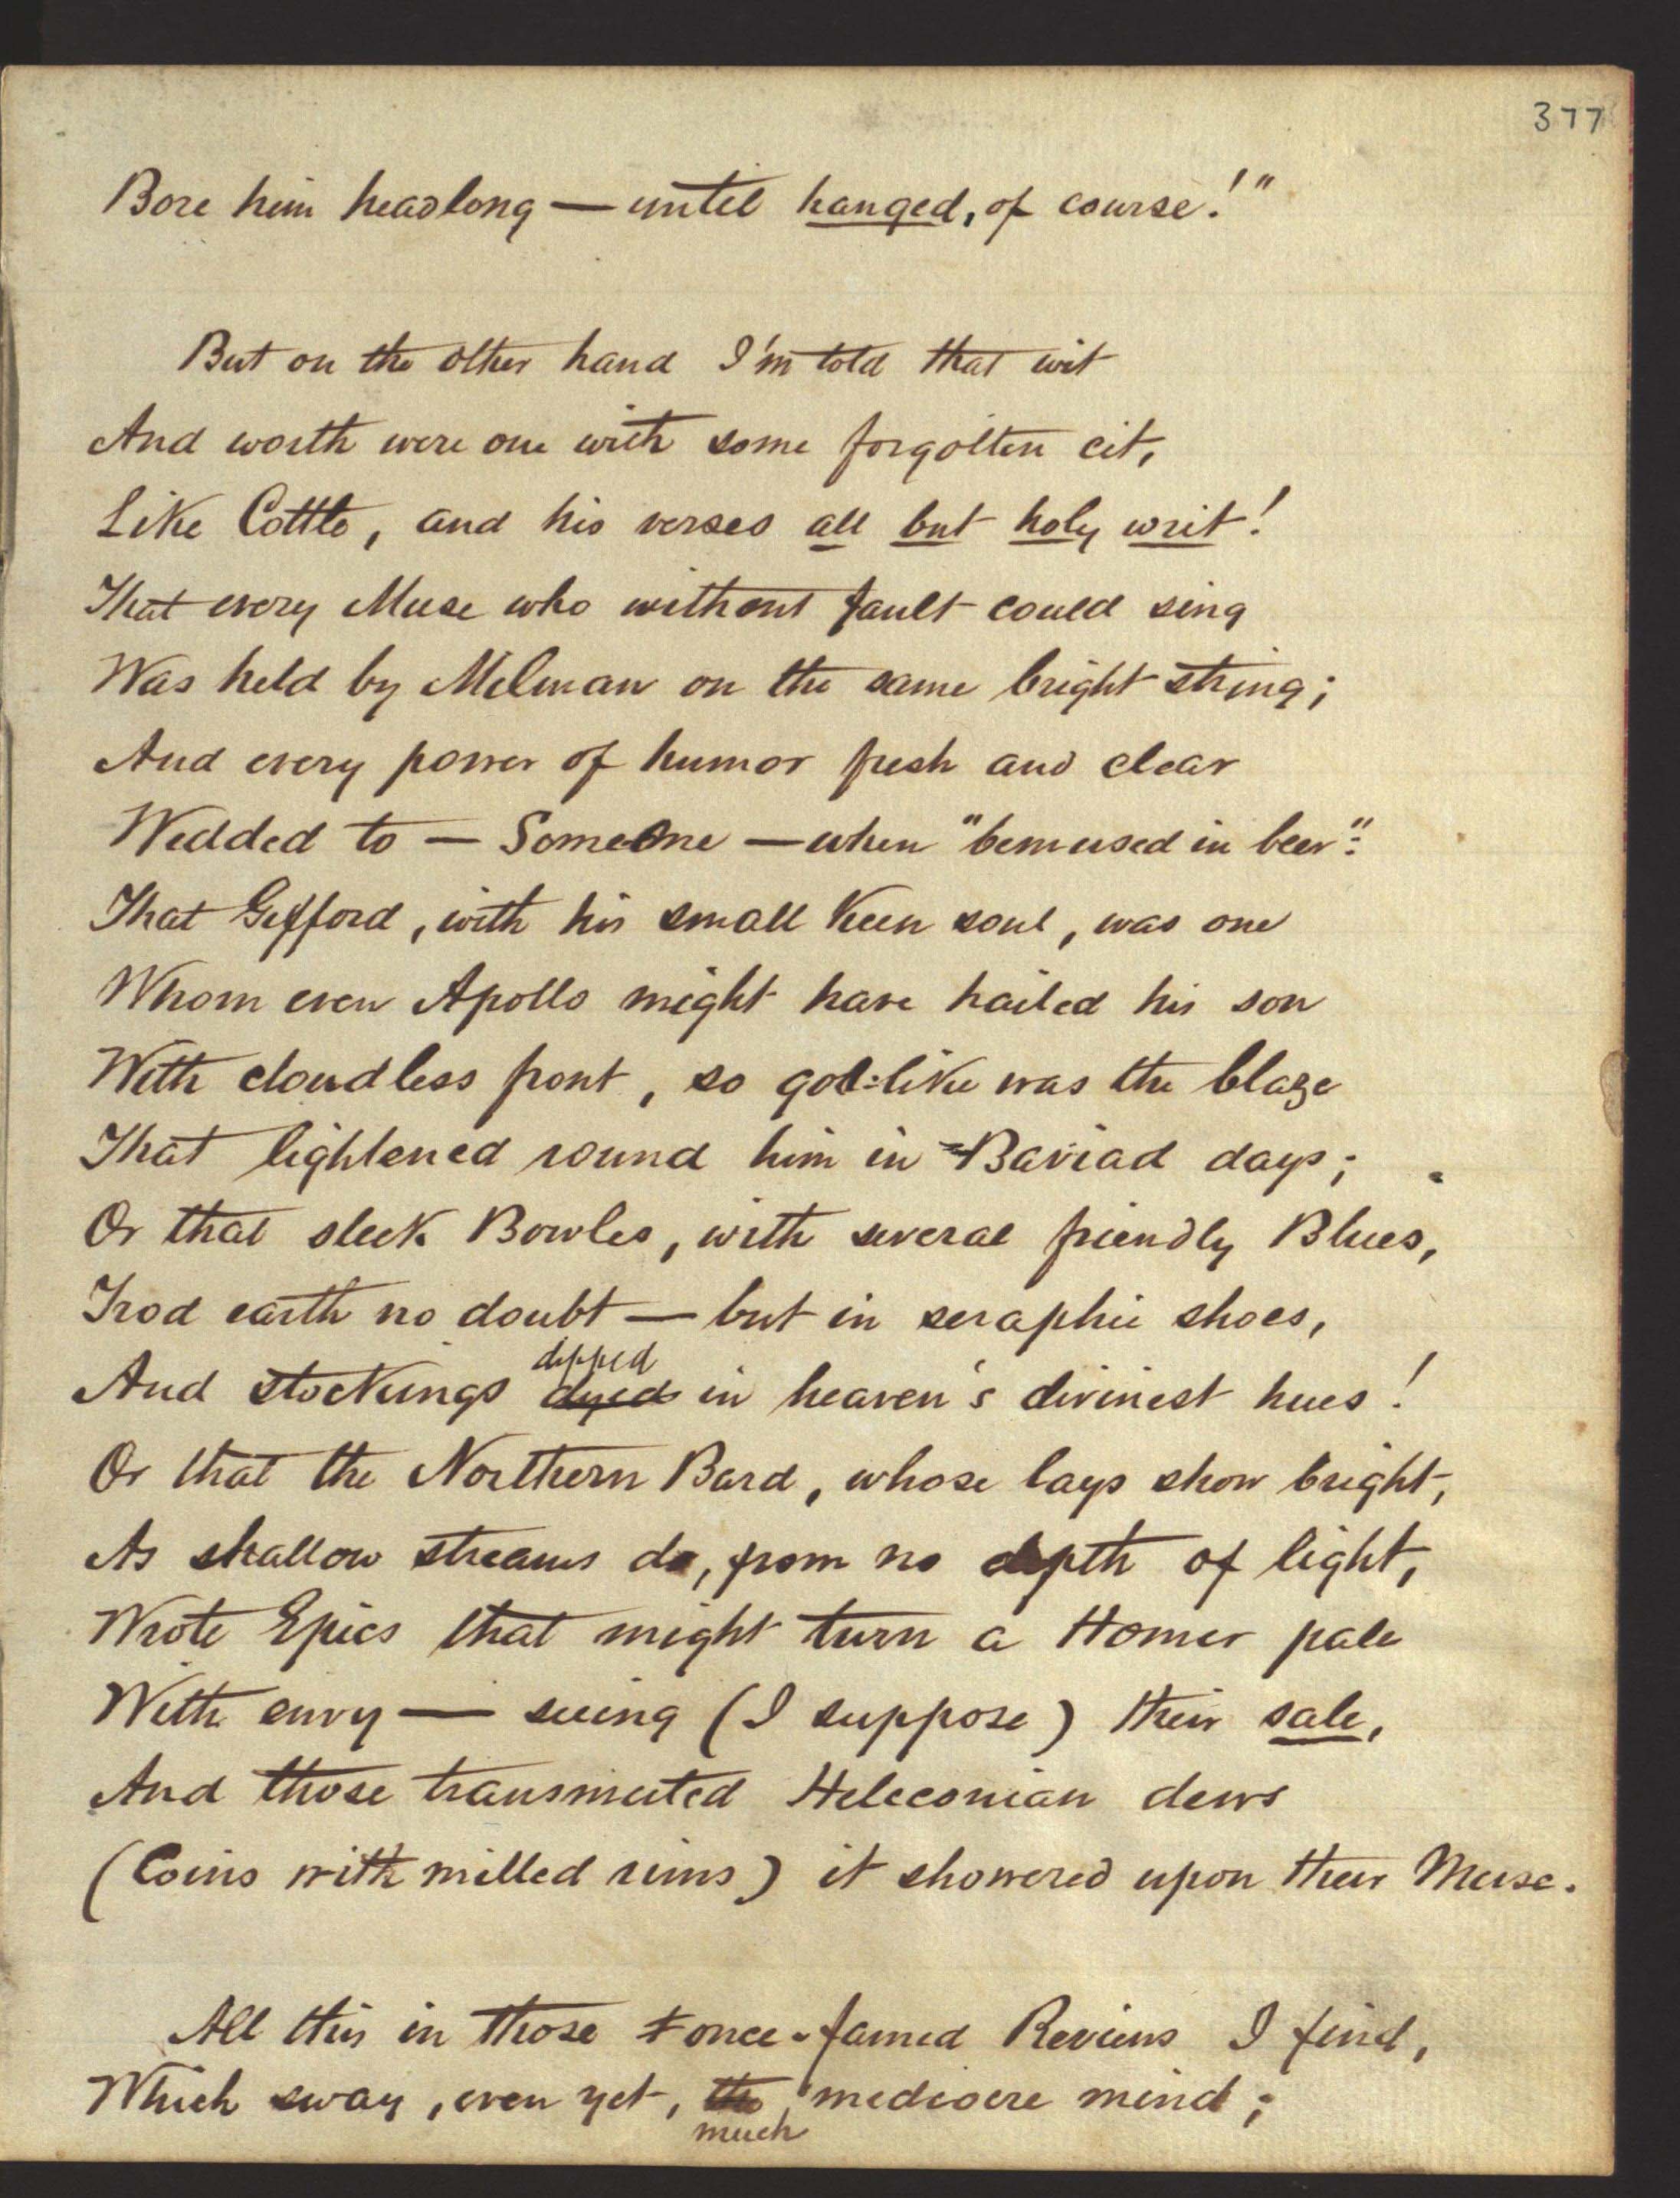 377
Bore him headlong — until hanged, of course!"
But on the other hand I'm told that wit
And worth were one with some forgotten cit,
Like Cottle, and his verses all but holy writ!
That every Muse who without fault could sing
Was held by Milman on the same bright string;
And every power of humor fresh and clear
Wedded to — Someone — when "bemused in beer":
That Gifford, with his small keen soul, was one
Whom even Apollo might have hailed his son
With cloudless front, so god-like was the blaze
That lightened round him in Baviad days;
Or that sleek Bowles, with several friendly Blues,
Trod earth no doubt — but in seraphic shoes,
dipped
And stockings dyed in heaven's divinest hues!
Or that the Northern Bard, whose lays show bright,
As shallow streams do, from no depth of light,
Wrote Epics that might turn a Homer pale
With envy — seeing (I suppose) their sale,
And those transmuted Heleconian dews
(Coins with milled rims) it showered upon their Muse.
All this in those once-famed Reviews I find,
Which sway, even yet, the mediocre mind;
much